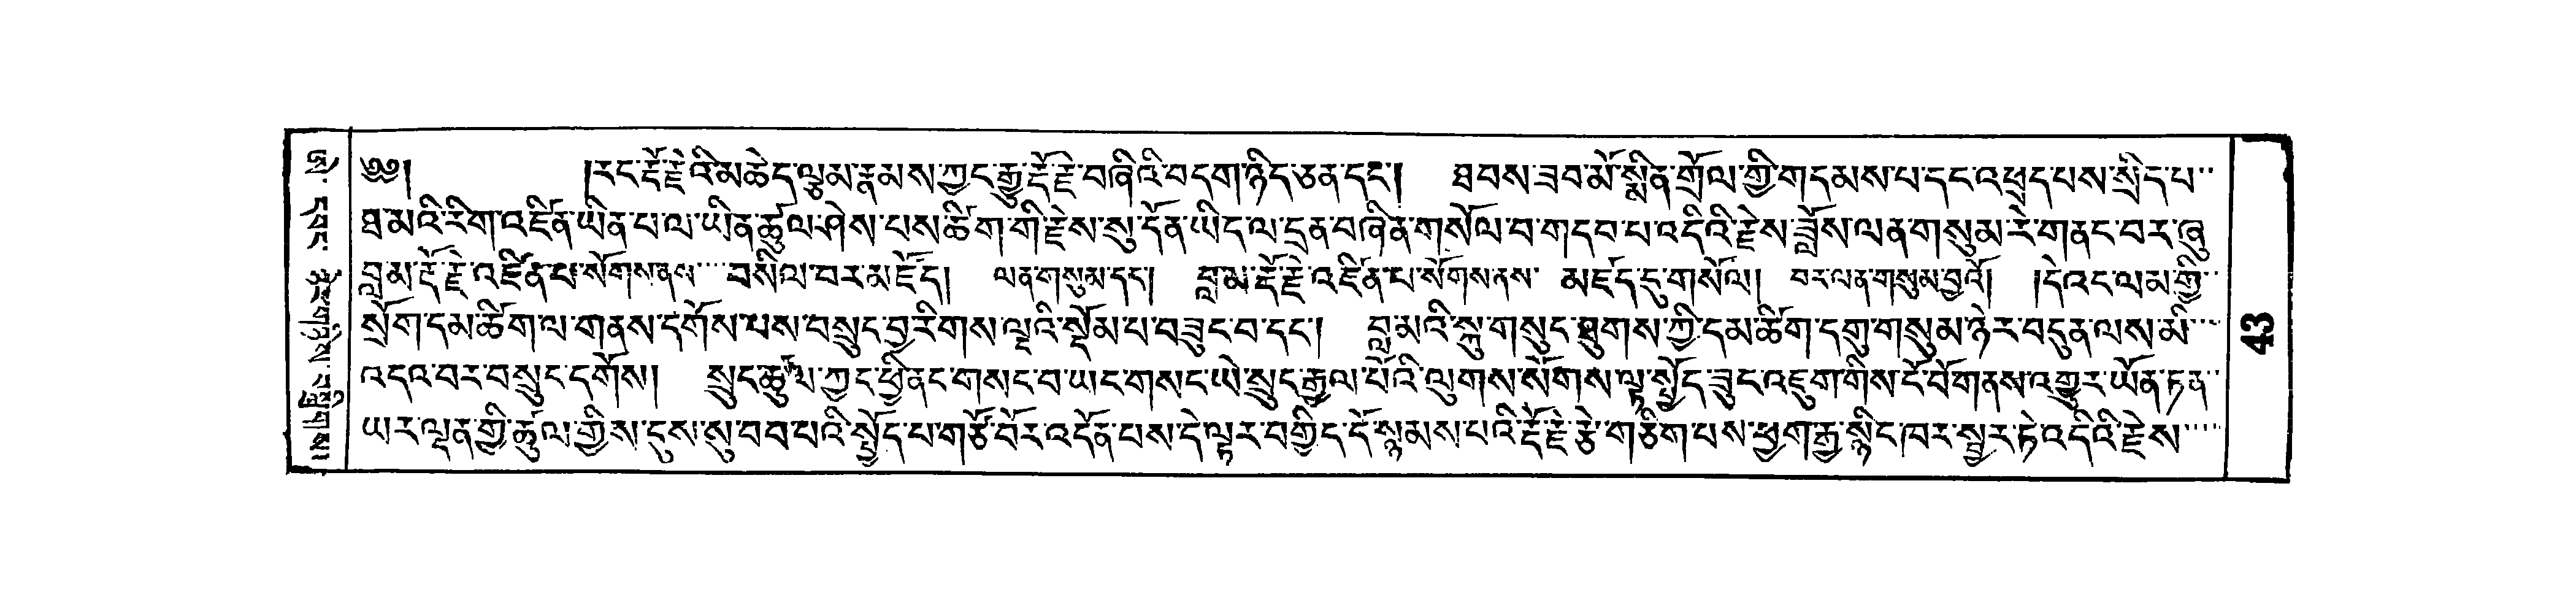 ༄༅། །རང་རྡོ་རྗེའི་མཆེད་ལྕམ་རྣམས་ཀྱང་རྒྱུ་རྡོ་རྗེ་བཞིའི་བདག་ཉིད་ཅན་དང་། ཐབས་ཟབ་མོ་སྨིན་གྲོལ་གྱི་གདམས་པ་དང་འཕྲད་པས་སྲིད་པ་
ཐ་མའི་རིག་འཛིན་ཡིན་པ་ལ་ཡིན་ཚུལ་ཤེས་པས་ཚིག་གི་རྗེས་སུ་དོན་ཡིད་ལ་དྲན་བཞིན་གསོལ་བ་གདབ་པ་འདིའི་རྗེས་ཟློས་ལན་གསུམ་རེ་གནང་བར་ཞུ
བླ་མ་རྡོ་རྗེ་འཛིན་པ་སོགས་ནས་ བསིལ་བར་མཛོད། ལན་གསུམ་དང་། བླ་མ་རྡོ་རྗེ་འཛིན་པ་སོགས་ནས་ མཛད་དུ་གསོལ། བར་ལན་གསུམ་བྱའོ། །དེ་འང་ལམ་གྱི་
སྲོག་དམ་ཚིག་ལ་གནས་དགོས་པས་བསྲུང་བྱ་རིགས་ལྔའི་སྡོམ་པ་བཟུང་བ་དང་། བླ་མའི་སྐུ་གསུང་ཐུགས་ཀྱི་དམ་ཚིག་དགུ་གསུམ་ཉེར་བདུན་ལས་མི་
འདའ་བར་བསྲུང་དགོས། སྲུང་ཚུལ་ཀྱང་ཕྱི་ནང་གསང་བ་ཡང་གསང་ཡེ་སྲུང་རྒྱལ་པོའི་ལུགས་སོགས་ལྟ་སྤྱོད་ཟུང་འཇུག་གིས་ངོ་བོ་གནས་འགྱུར་ཡོན་ཏན་
ཡར་ལྡན་གྱི་ཚུལ་གྱིས་དུས་སུ་བབ་པའི་སྤྱོད་པ་གཙོ་བོར་འདོན་པས་དེ་ལྟར་བགྱིད་དོ་སྙམས་པའི་རྡོ་རྗེ་རྩེ་གཅིག་པས་ཕྱག་རྒྱ་སྙིང་ཁར་སྦྱར་ཏེ་འདིའི་རྗེས་